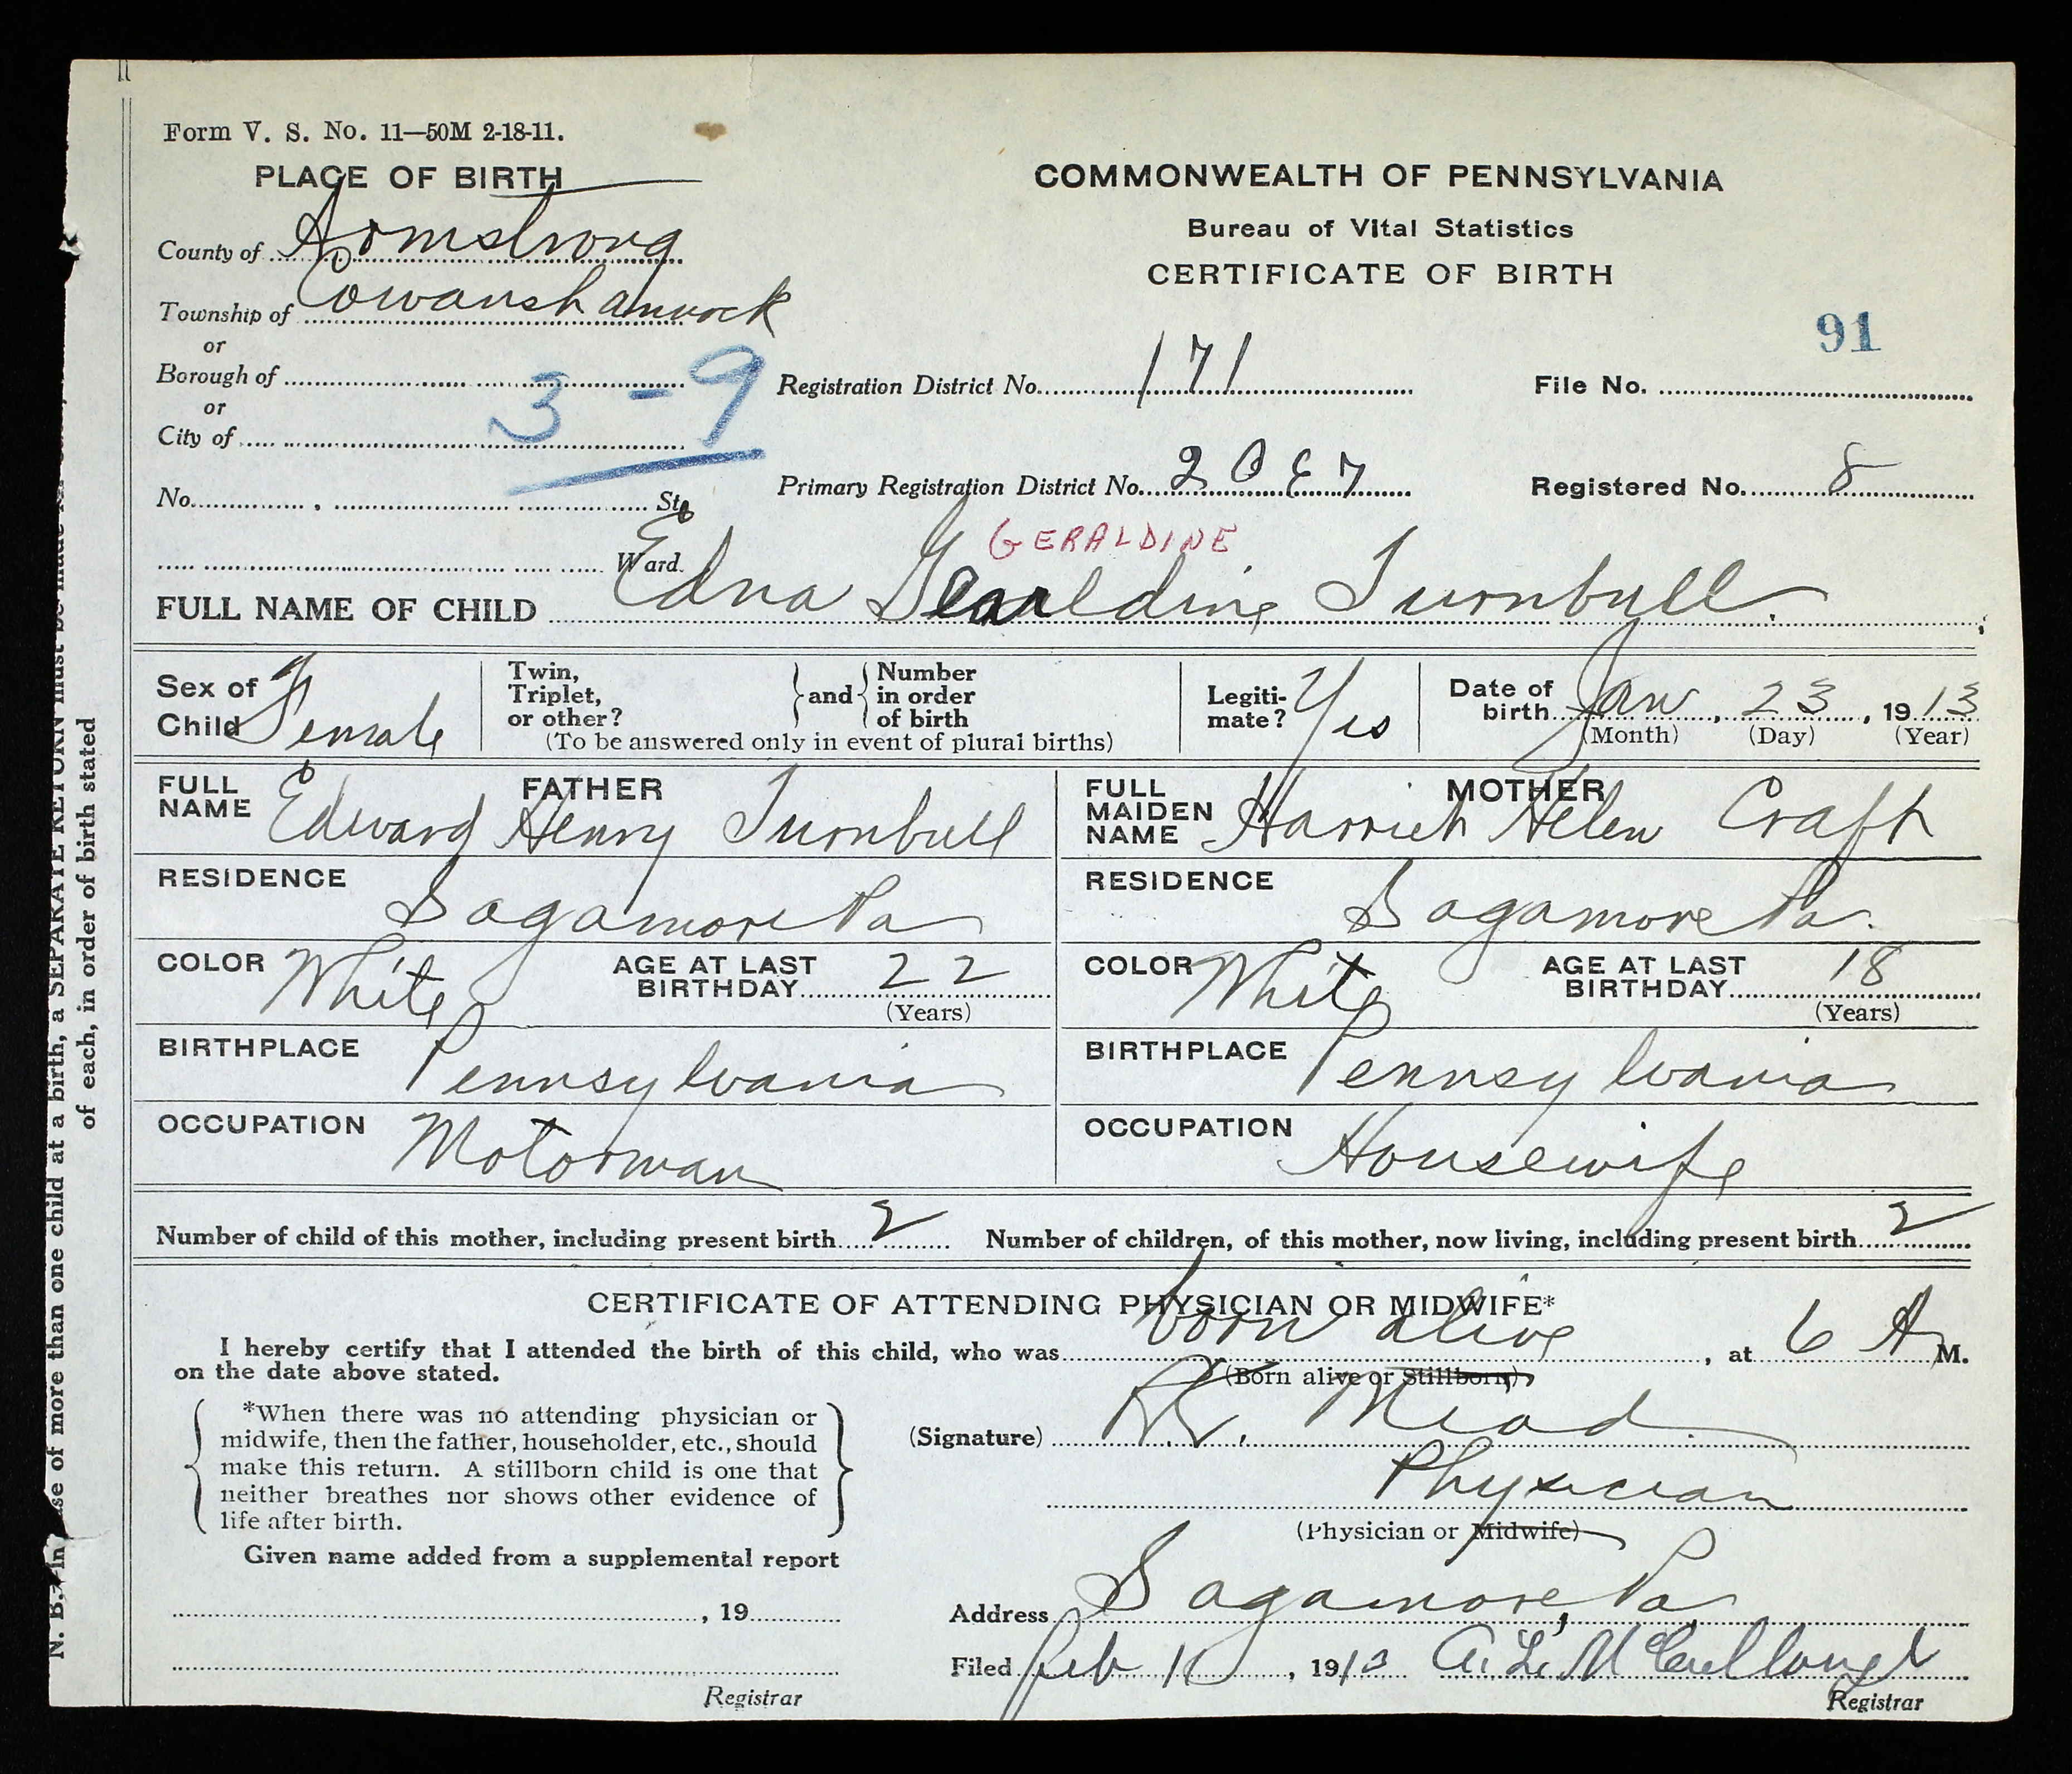 Form V. S. No. 11—50M 2-18-11.
PLACE OF BIRTH
County of Armstrong
Township of Cowanshannock
or
Borough of
or
City of
3 - 9
No. , St.
Ward.
COMMONWEALTH OF PENNSYLVANIA
Bureau of Vital Statistics
CERTIFICATE OF BIRTH
91
Registration District No. 171 File No.
Primary Registration District No. Registered No. 8
GERALDINE
FULL NAME OF CHILD Edna Turnbull
Sex of Child Female
Twin, Triplet, or other? and Number in order of birth
(To be answered only in event of plural births)
Legitimate? Yes
Date of birth Jan, 23, 1913
(Month) (Day) (Year)
FATHER
FULL NAME Edward Henry Turnbull
RESIDENCE Sagamore Pa
COLOR White AGE AT LAST BIRTHDAY 22
(Years)
BIRTHPLACE Pennsylvania
OCCUPATION Motorman
MOTHER
FULL MAIDEN NAME Harriet Helen Craft
RESIDENCE Sagamore Pa.
COLOR White AGE AT LAST BIRTHDAY 18
(Years)
BIRTHPLACE Pennsylvania
OCCUPATION Housewife
Number of child of this mother, including present birth 2 Number of children, of this mother, now living, including present birth 2
CERTIFICATE OF ATTENDING PHYSICIAN OR MIDWIFE*
I hereby certify that I attended the birth of this child, who was born alive, at 6 A M.
on the date above stated. (Born alive or Stillborn)
*When there was no attending physician or
midwife, then the father, householder, etc., should
make this return. A stillborn child is one that
neither breathes nor shows other evidence of
life after birth.
Given name added from a supplemental report
, 19
Registrar
(Signature) Mead
Physician
(Physician or Midwife)
Address Sagamore, Pa
Filed Feb , 1913 A. L. McCullough
Registrar
N. B.—In case of more than one child at a birth, a SEPARATE RETURN must be made
of each, in order of birth stated